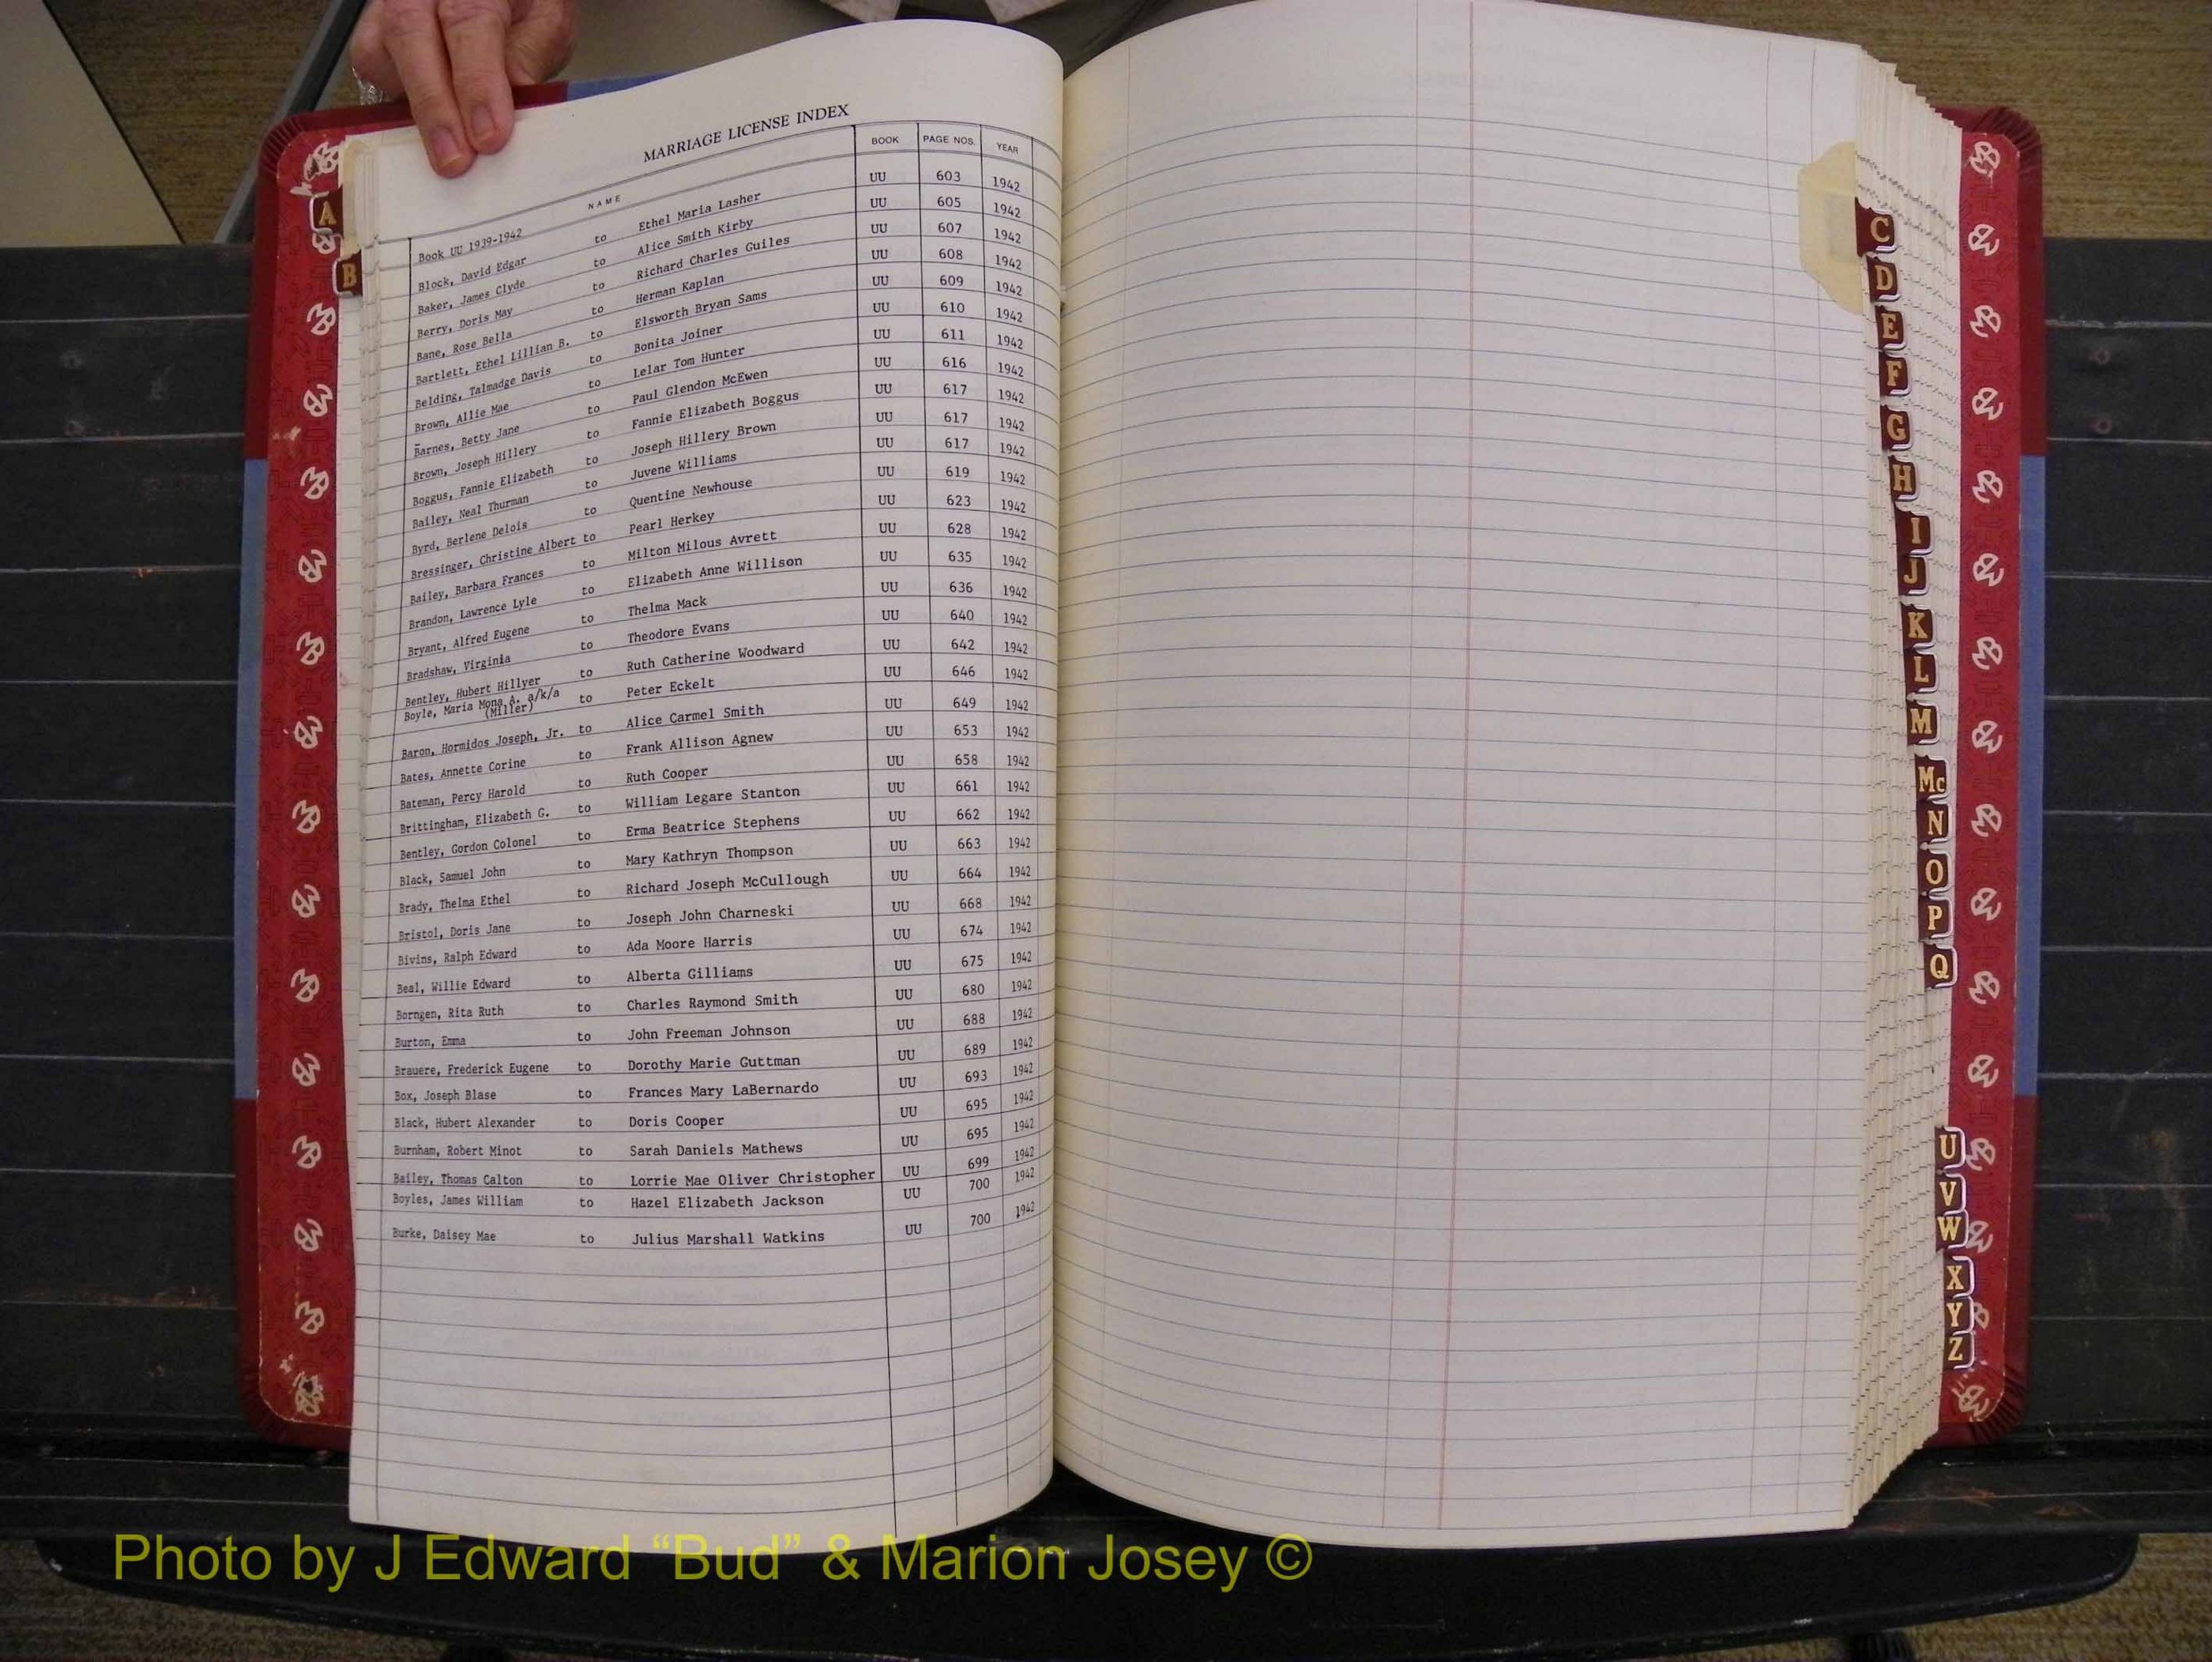 MARRIAGE LICENSE INDEX
NAME BOOK PAGE NOS. YEAR
Book UU 1939-1942
Block, David Edgar to Ethel Maria Lasher UU 603 1942
Baker, James Clyde to Alice Smith Kirby UU 605 1942
Berry, Doris May to Richard Charles Guiles UU 607 1942
Bane, Rose Bella to Herman Kaplan UU 608 1942
Bartlett, Ethel Lillian B. to Elsworth Bryan Sams UU 609 1942
Belding, Talmadge Davis to Bonita Joiner UU 610 1942
Brown, Allie Mae to Lelar Tom Hunter UU 611 1942
Barnes, Betty Jane to Paul Glendon McEwen UU 616 1942
Brown, Joseph Hillery to Fannie Elizabeth Boggus UU 617 1942
Boggus, Fannie Elizabeth to Joseph Hillery Brown UU 617 1942
Bailey, Neal Thurman to Juvene Williams UU 617 1942
Byrd, Berlene Delois to Quentine Newhouse UU 619 1942
Bressinger, Christine Albert to Pearl Herkey UU 623 1942
Bailey, Barbara Frances to Milton Milous Avrett UU 628 1942
Brandon, Lawrence Lyle to Elizabeth Anne Willison UU 635 1942
Bryant, Alfred Eugene to Thelma Mack UU 636 1942
Bradshaw, Virginia to Theodore Evans UU 640 1942
Bentley, Hubert Hillyer to Ruth Catherine Woodward UU 642 1942
Boyle, Maria Mona A. a/k/a to Peter Eckelt UU 646 1942
(Miller)
Baron, Hormidos Joseph, Jr. to Alice Carmel Smith UU 649 1942
Bates, Annette Corine to Frank Allison Agnew UU 653 1942
Bateman, Percy Harold to Ruth Cooper UU 658 1942
Brittingham, Elizabeth G. to William Legare Stanton UU 661 1942
Bentley, Gordon Colonel to Erma Beatrice Stephens UU 662 1942
Black, Samuel John to Mary Kathryn Thompson UU 663 1942
Brady, Thelma Ethel to Richard Joseph McCullough UU 664 1942
Bristol, Doris Jane to Joseph John Charneski UU 668 1942
Bivins, Ralph Edward to Ada Moore Harris UU 674 1942
Beal, Willie Edward to Alberta Gilliams UU 675 1942
Borngen, Rita Ruth to Charles Raymond Smith UU 680 1942
Burton, Emma to John Freeman Johnson UU 688 1942
Brauere, Frederick Eugene to Dorothy Marie Guttman UU 689 1942
Box, Joseph Blase to Frances Mary LaBernardo UU 693 1942
Black, Hubert Alexander to Doris Cooper UU 695 1942
Burnham, Robert Minot to Sarah Daniels Mathews UU 695 1942
Bailey, Thomas Calton to Lorrie Mae Oliver Christopher UU 699 1942
Boyles, James William to Hazel Elizabeth Jackson UU 700 1942
Burke, Daisey Mae to Julius Marshall Watkins UU 700 1942
A
B
C
D
E
F
G
H
I
J
K
L
M
Mc
N
O
P
Q
U
V
W
X
Y
Z
Photo by J Edward “Bud” & Marion Josey ©